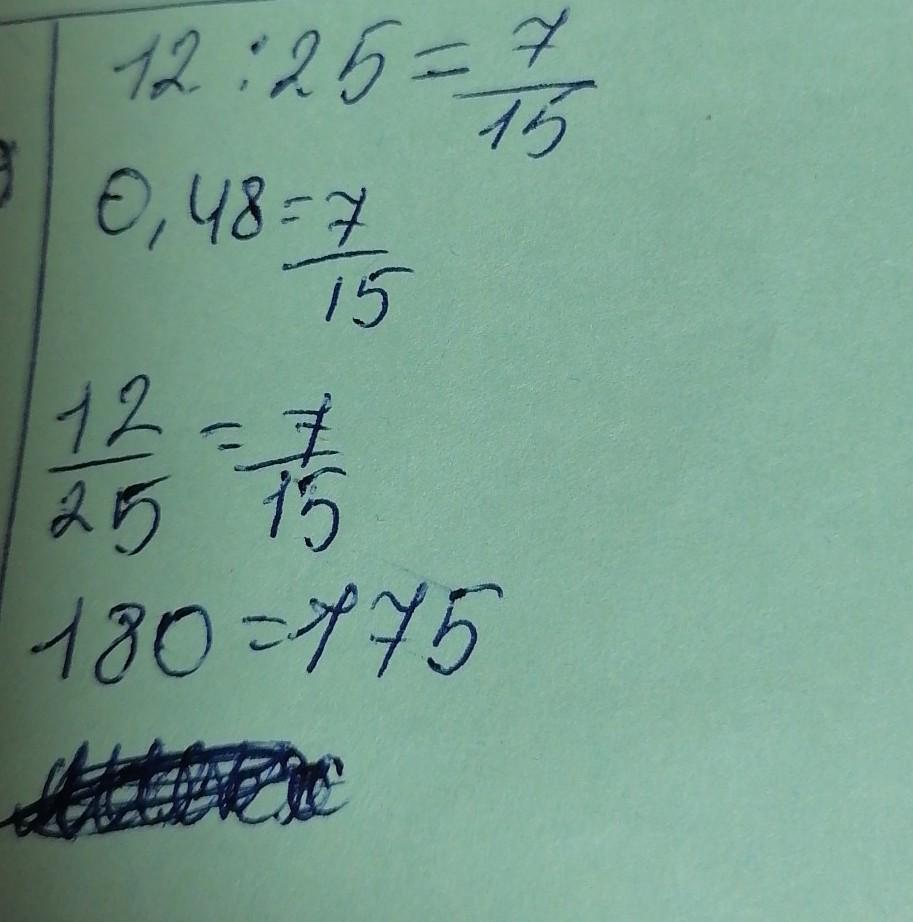 12 : 25 = 7/15
0,48 = 7/15
12/25 = 7/15
180 = 175